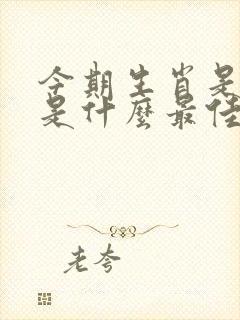 今期生肖是
是什麼最佳
老夸